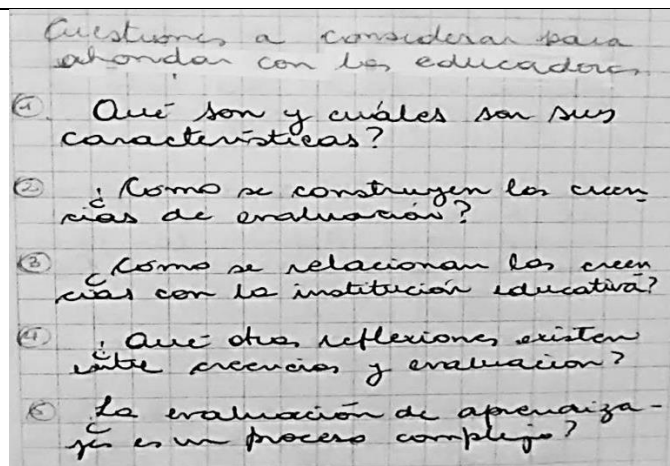 Cuestiones a considerar para
ahondar con los educadores
① Qué son y cuáles son sus
características?
② ¿Como se construyen las creen
cias de evaluación?
③ ¿Como se relacionan las creen
cias con la institución educativa?
④ ¿Qué otras reflexiones existen
entre creencias y evaluación?
⑤ ¿La evaluación de aprendiza-
jes es un proceso complejo?